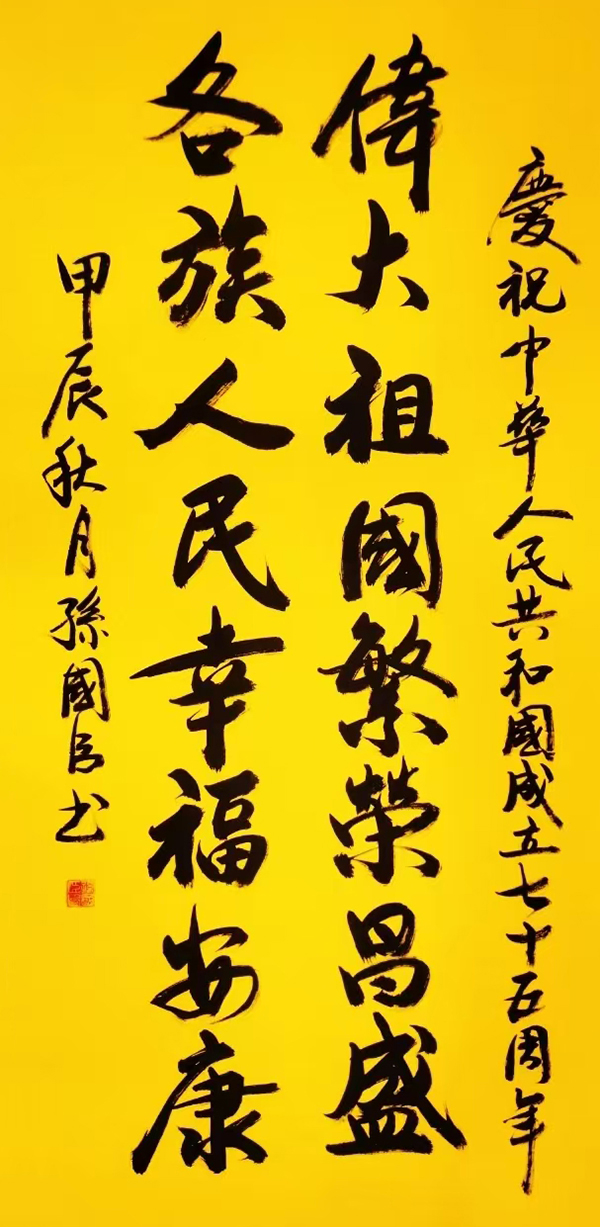 慶祝中華人民共和國成立七十五周年
偉大祖國繁榮昌盛
各族人民幸福安康
甲辰秋月孫國良书